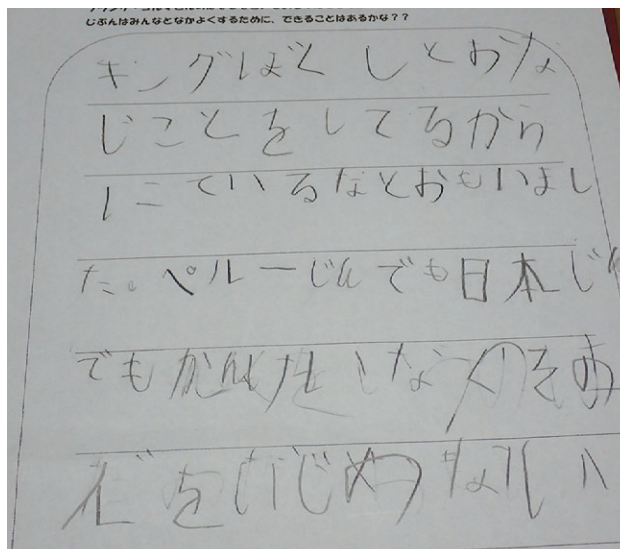 じぶんはみんなとなかよくするために、できることはあるかな??
キングぼくしとおな
じことをしてるから
にているなとおもいまし
た。ペルーじんでも日本じん
でもかんけいない
をいじめない